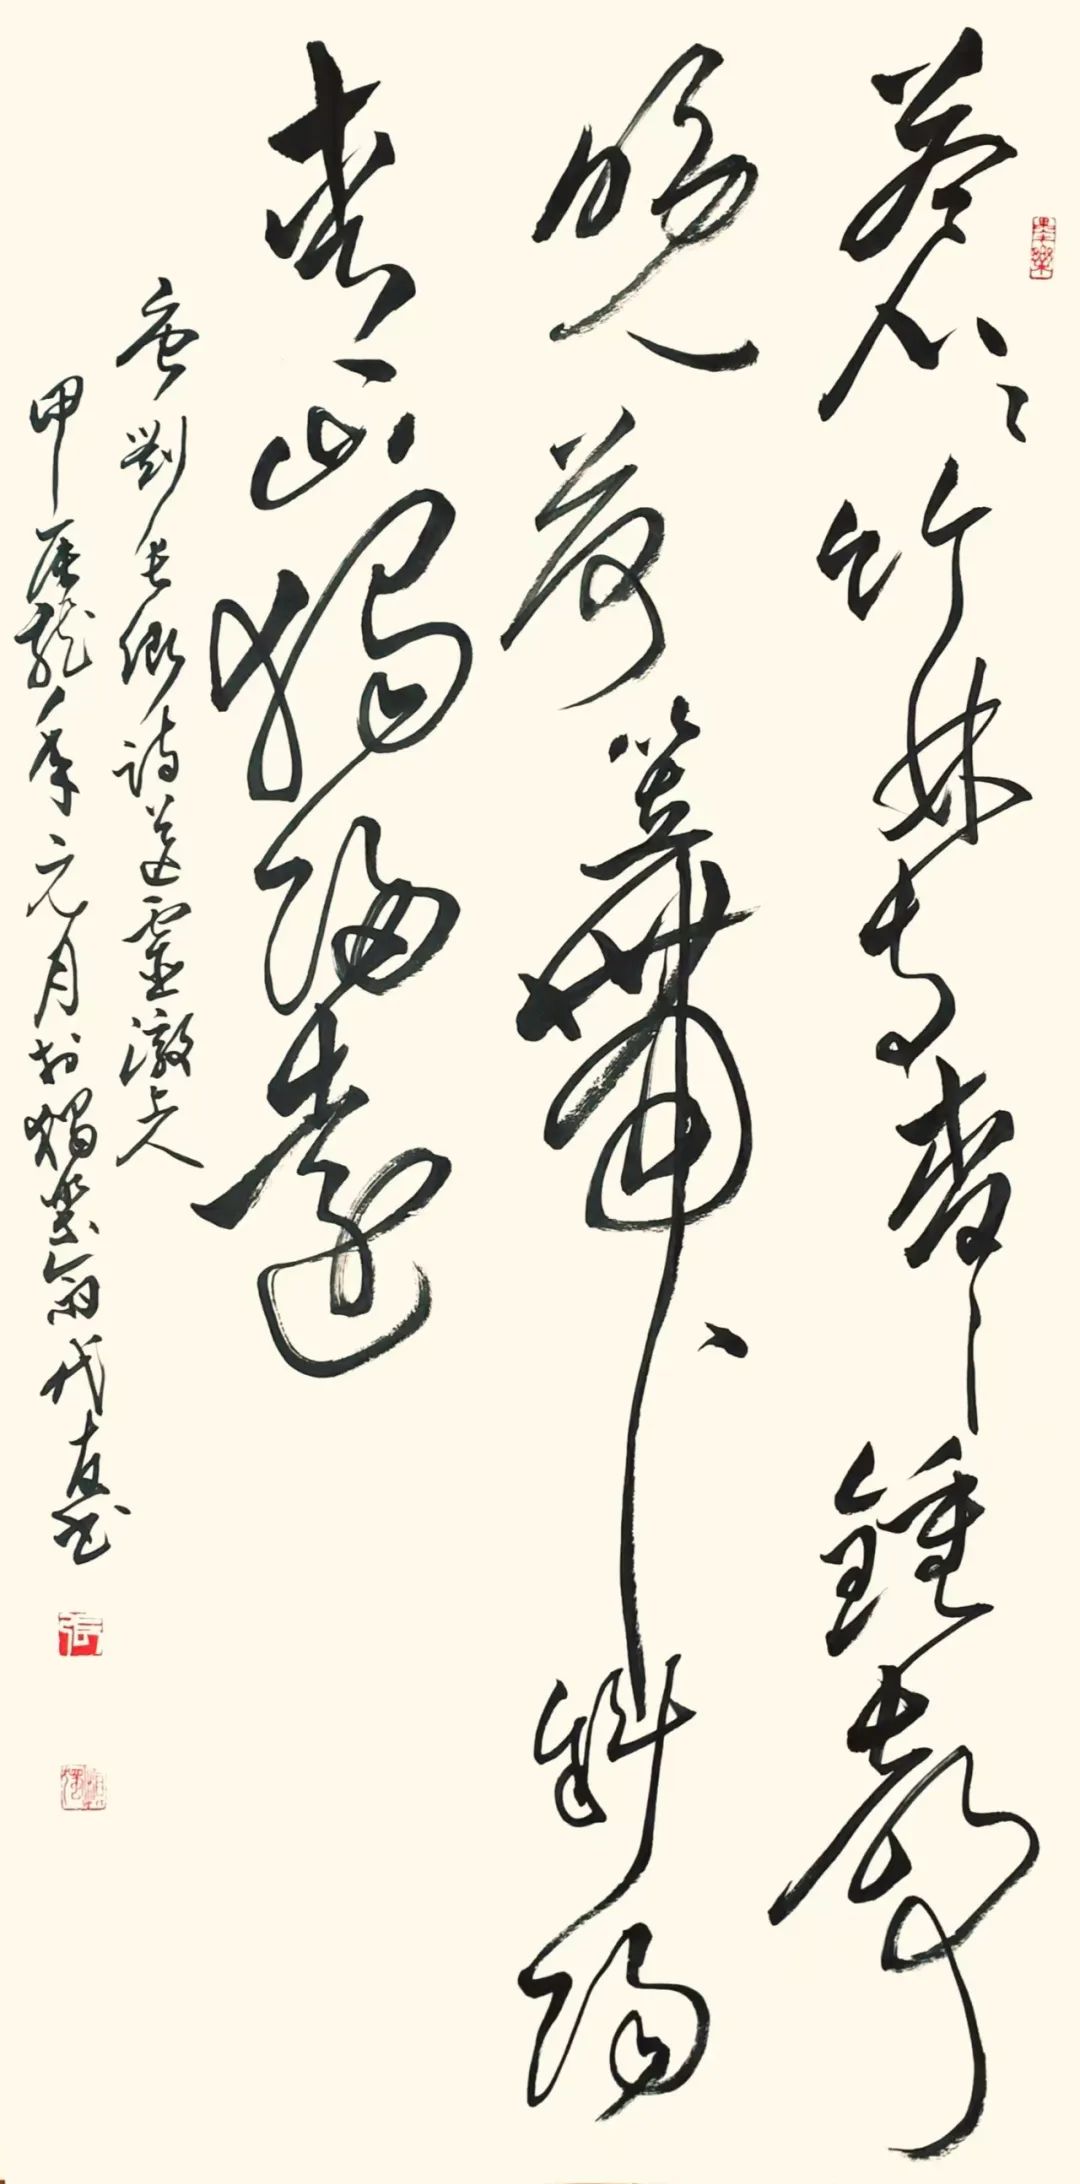 蒼〻竹林寺杳〻鐘聲
晚荷笠帶斜陽
青山獨歸遠
唐劉長卿詩送靈澈上人
甲辰龍年元月於獨翁代友書
張